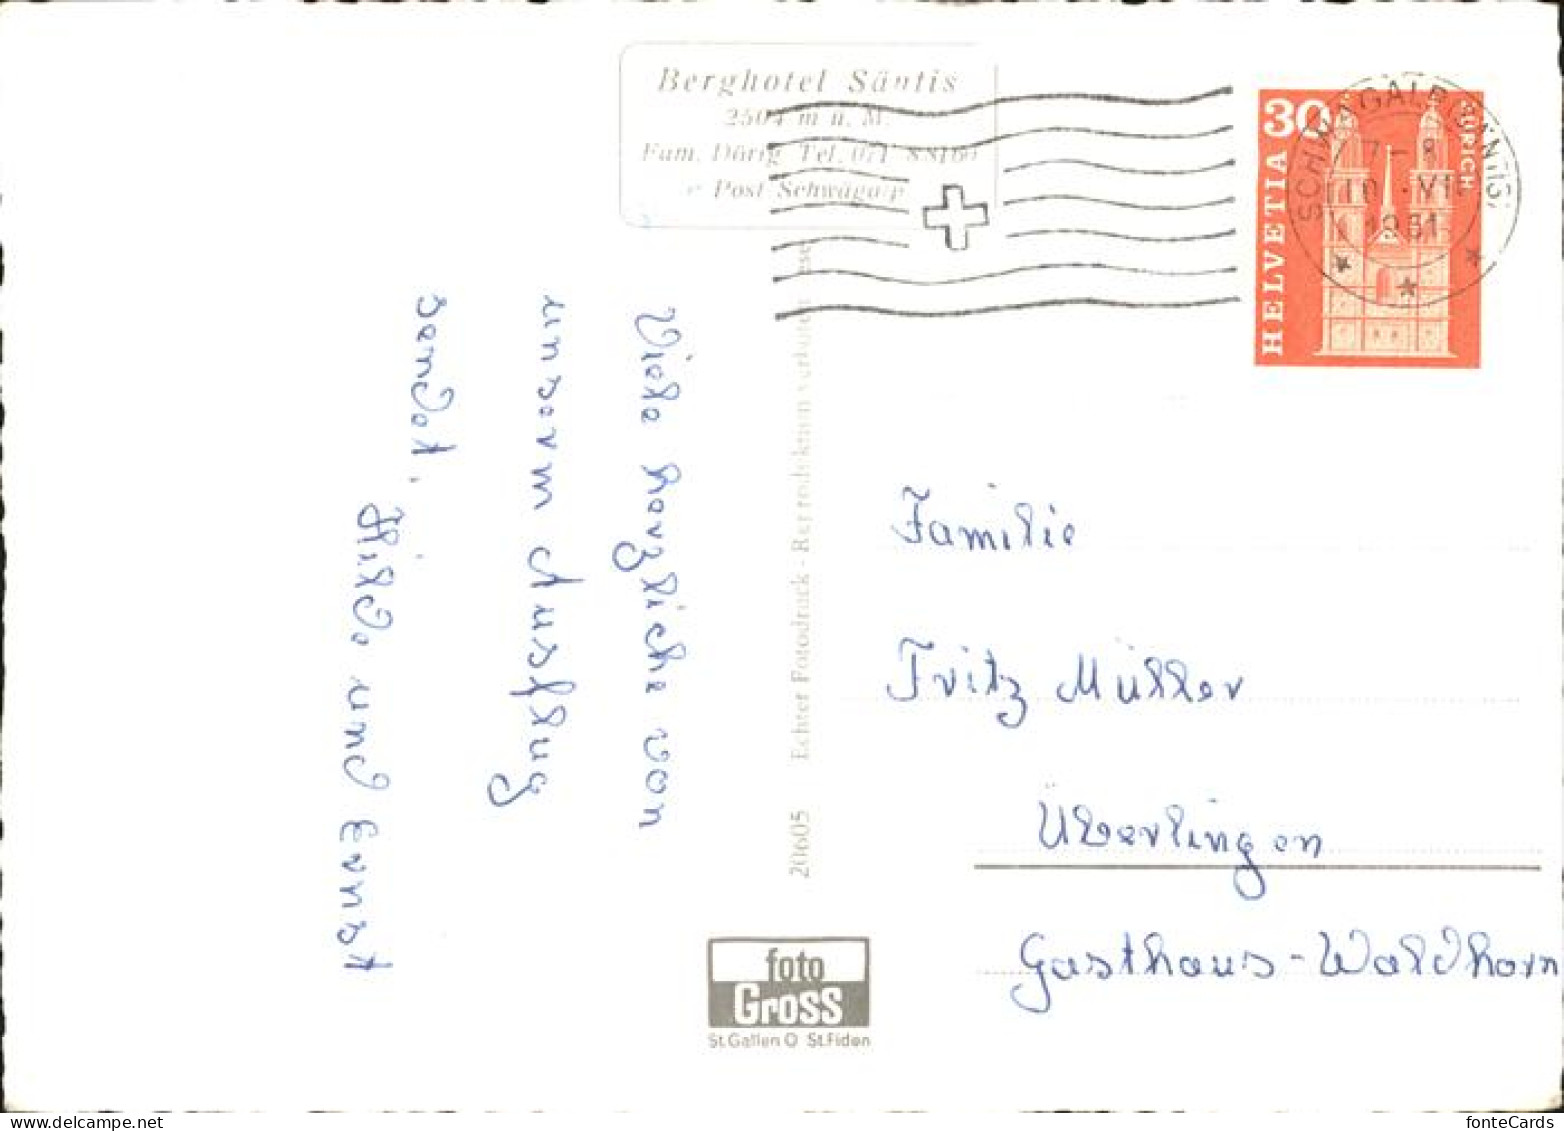 Berghotel Säntis
2504 m ü. M.
Fam. Dörig Tel. 071
Post Schwägalp
30
HELVETIA
ZÜRICH
SCHWÄGALP (SÄNTIS)
7-8
10.-VII
1961
Viele herzliche von
unserm Ausflug
sendet.
Hilde und Ernst
20605 Echter Fotodruck - Reproduktion verboten
Familie
Fritz Müller
Überlingen
Gasthaus-Waldhorn
foto
GROSS
St.Gallen O St.Fiden
delcampe.net
fonteCards